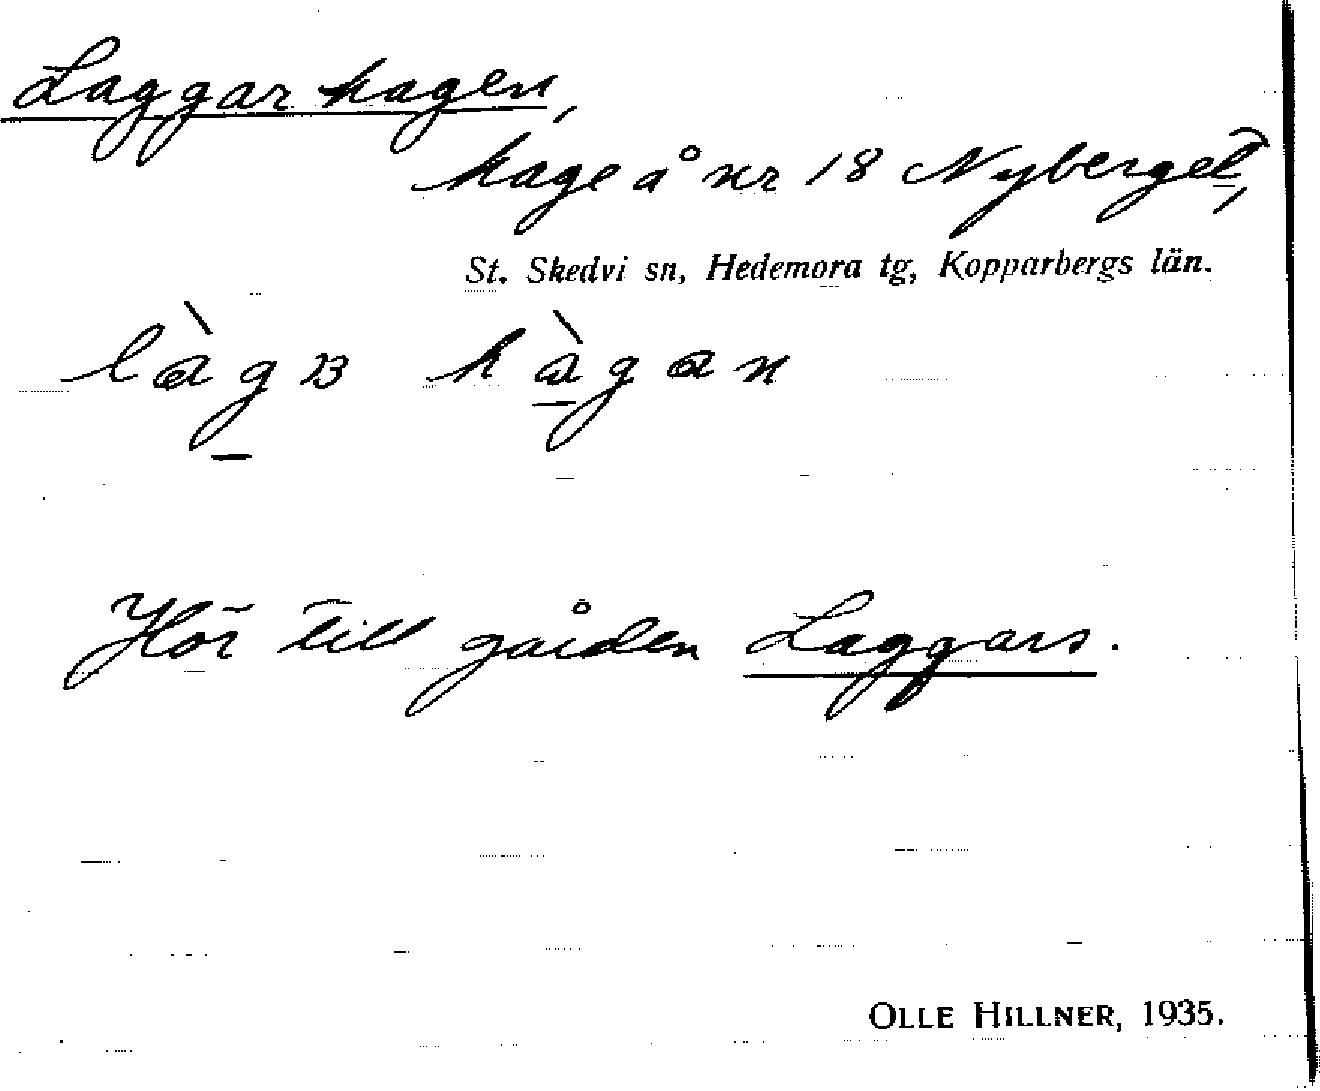 Laggarhagen,
hage å nr 18 Nyberget,
St. Skedvi sn, Hedemora tg, Kopparbergs län.
Hör till gården Laggars.
OLLE HILLNER, 1935.